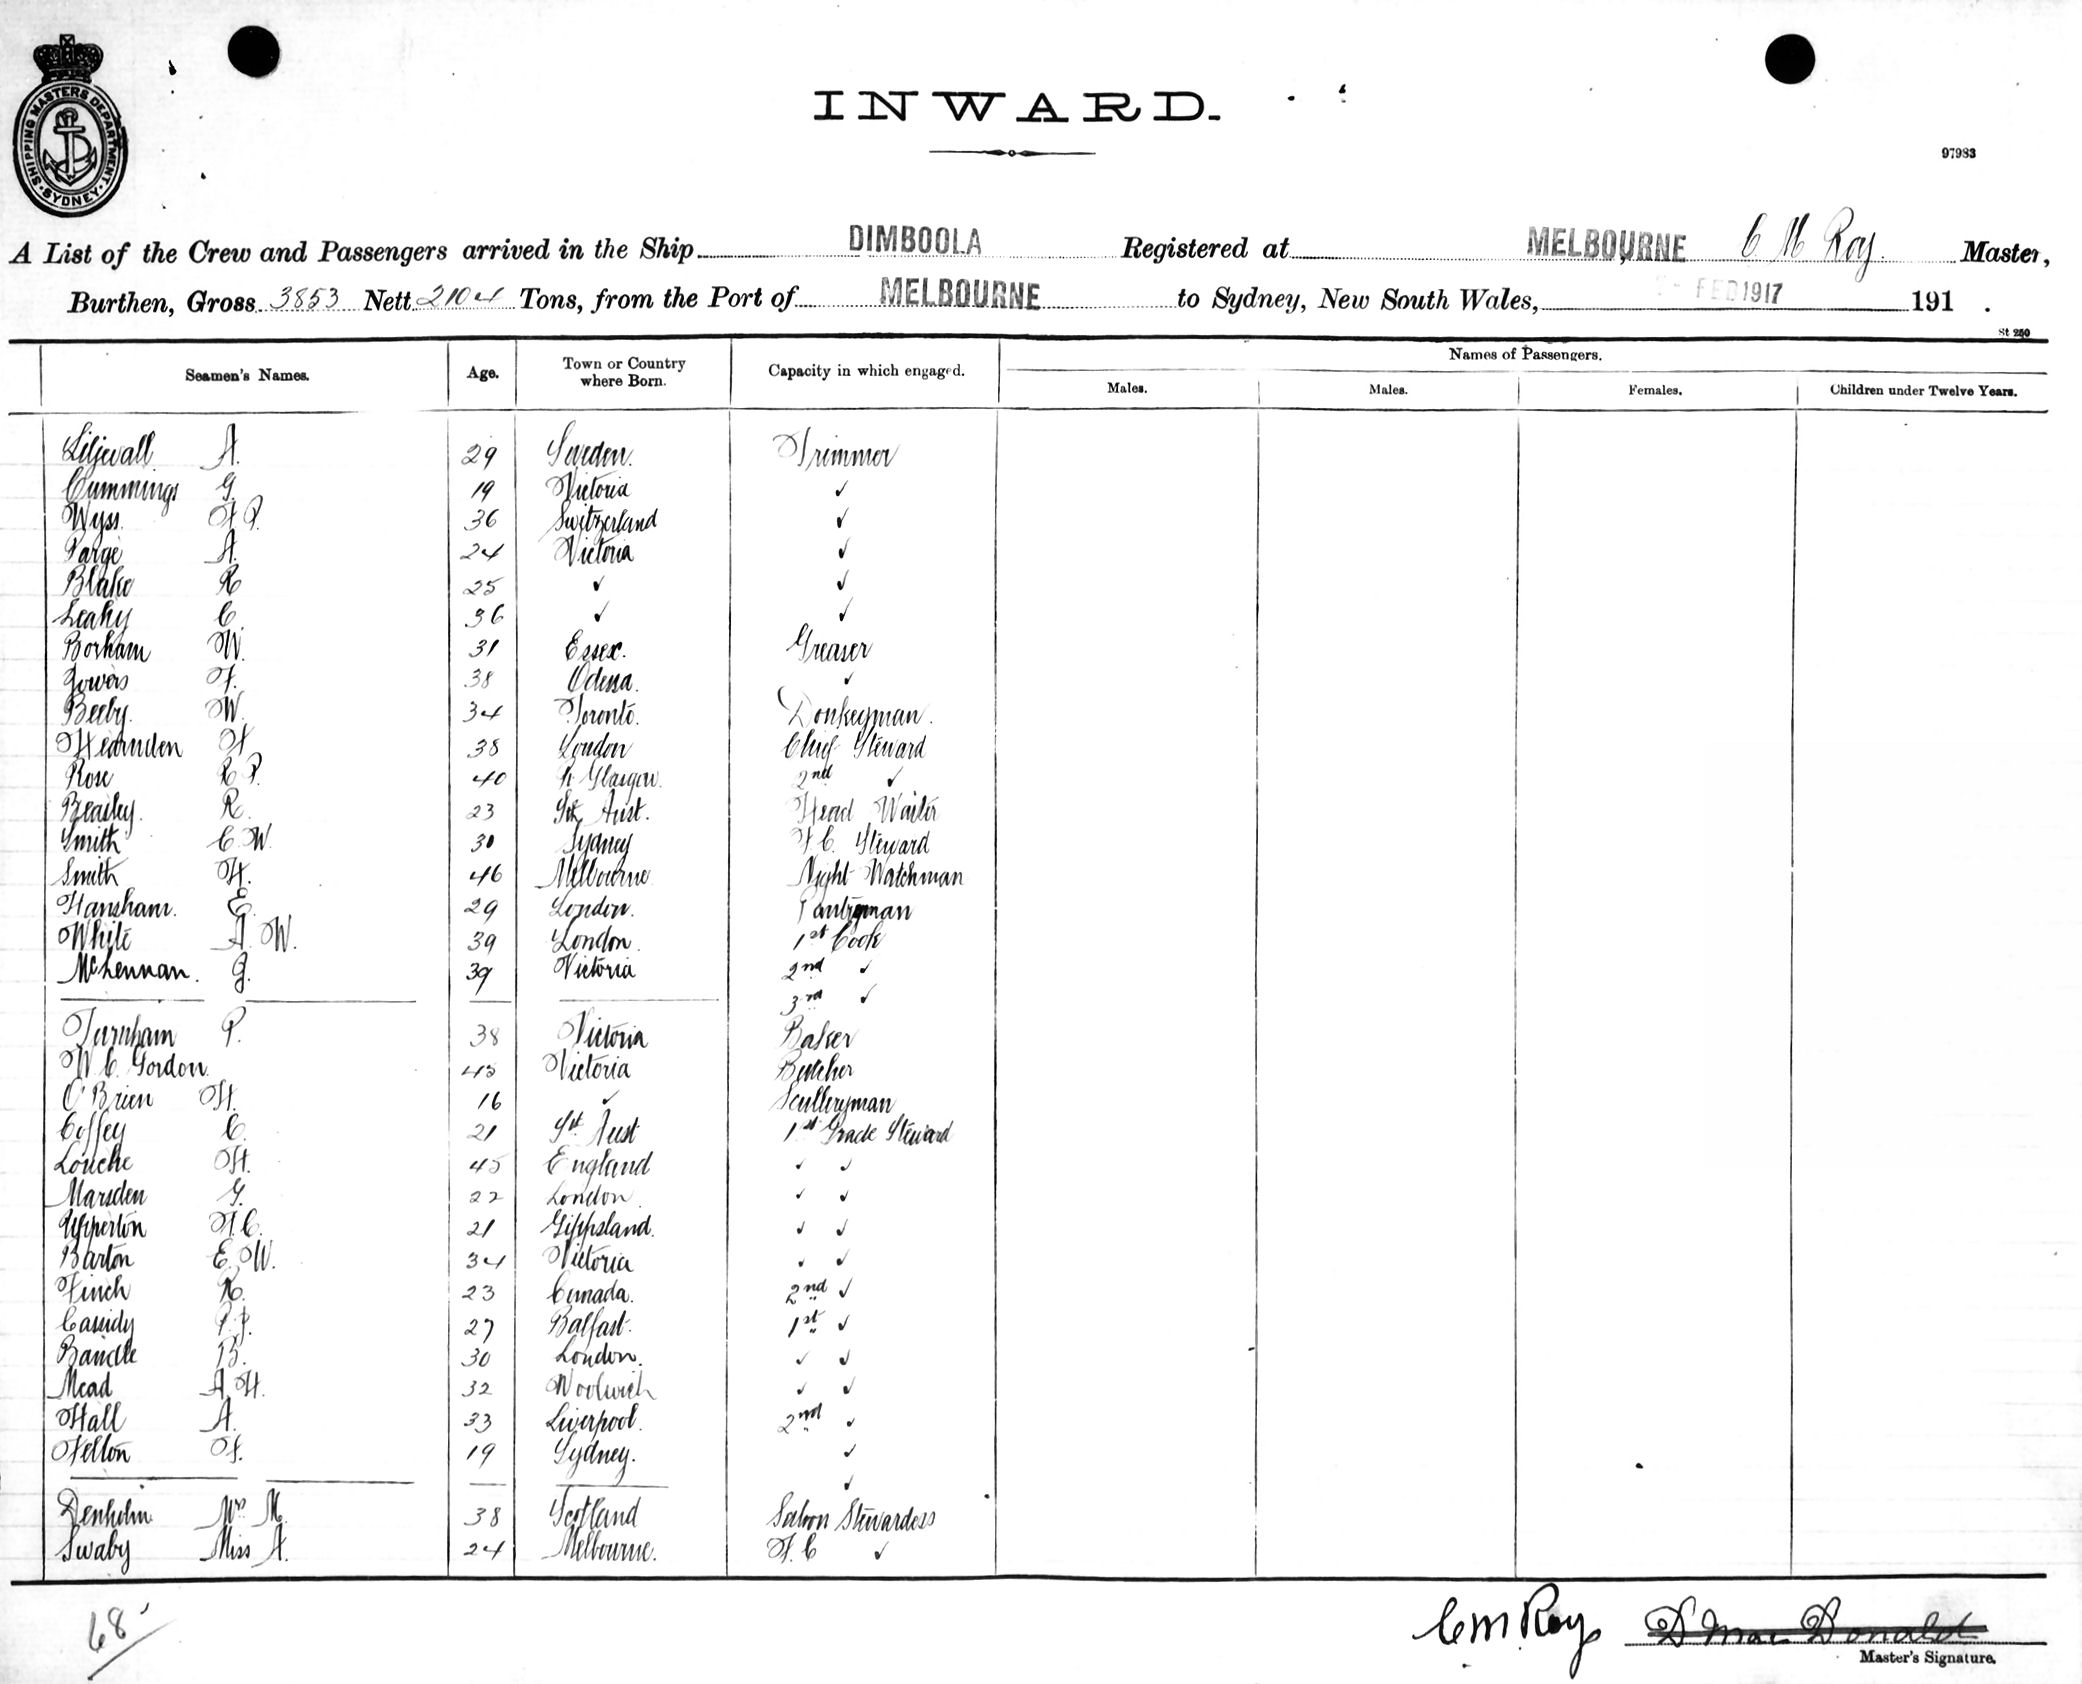 SHIPPING MASTERS DEPARTMENT. SYDNEY
INWARD.
97983
A List of the Crew and Passengers arrived in the Ship DIMBOOLA Registered at MELBOURNE C M Roy. Master,
Burthen, Gross 3853 Nett 2104 Tons, from the Port of MELBOURNE to Sydney, New South Wales, FEB 1917 191 .
St 250
Names of Passengers.
Seamen's Names. Age. Town or Country where Born. Capacity in which engaged. Males. Males. Females. Children under Twelve Years.
Liljevall A. 29 Sweden. Trimmer
Cummings G. 19 Victoria ✓
Wyss. F P. 36 Switzerland ✓
Parge A. 24 Victoria ✓
Blake R 25 ✓ ✓
Leahy C. 36 ✓ ✓
Borham W. 31 Essex. Greaser
Gowers F. 38 Odessa. ✓
Beeby. W. 34 Toronto. Donkeyman.
Hearnden H 38 London Chief Steward
Rose R P. 40 Glasgow. 2nd ✓
Beasley. R. 23 Sth Aust. Head Waiter
Smith C. W. 30 Sydney F. C. Steward
Smith H. 46 Melbourne Night Watchman
Hansham. E. 29 London. Pantryman
White A. W. 39 London. 1st Cook
McLennan. G. 39 Victoria 2nd ✓
3rd ✓
Turnham P. 38 Victoria Baker
W. C. Gordon. 45 Victoria Butcher
O'Brien H. 16 ✓ Sculleryman
Coffey C. 21 Sth Aust 1st Grade Steward
Louche H. 45 England ✓ ✓
Marsden G. 22 London. ✓ ✓
Upperton F. C. 21 Gippsland. ✓ ✓
Barton E. W. 34 Victoria ✓ ✓
Finch R. 23 Canada. 2nd ✓
Cassidy P. J. 27 Balfast. 1st ✓
Bandle B. 30 London. ✓ ✓
Mead A. H. 32 Woolwich ✓ ✓
Hall A. 33 Liverpool. 2nd ✓
Felton F. 19 Sydney. ✓
✓
Denholm Mrs M. 38 Scotland Saloon Stewardess
Swaby Miss A. 24 Melbourne. F. C ✓
68
C M Roy D MacDonald
Master's Signature.